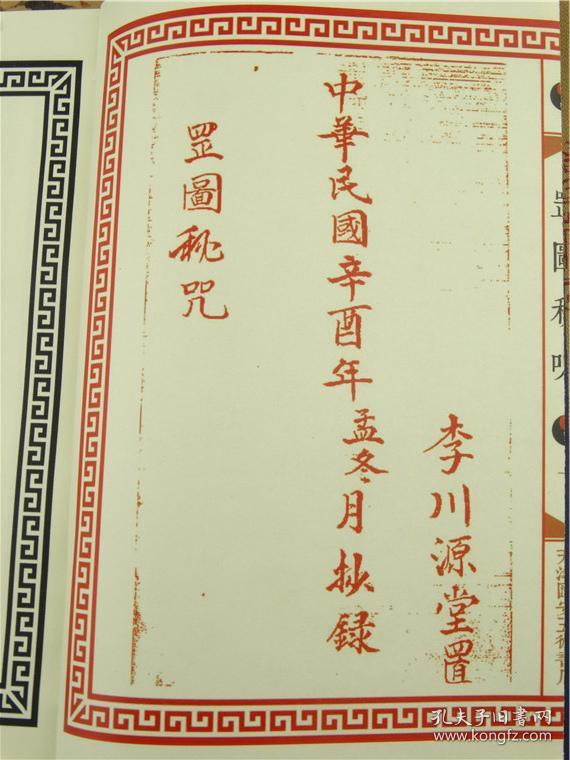 李川源堂置
中華民國辛酉年孟冬月抄錄
罡圖秘咒
罡圖秘咒
孔夫子旧書网
www.kongfz.com